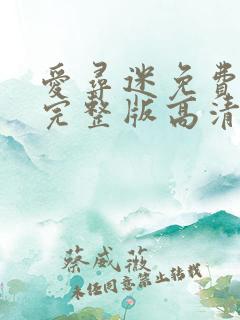 愛尋迷免費
完整版高清
蔡威薇
未经同意禁止转载